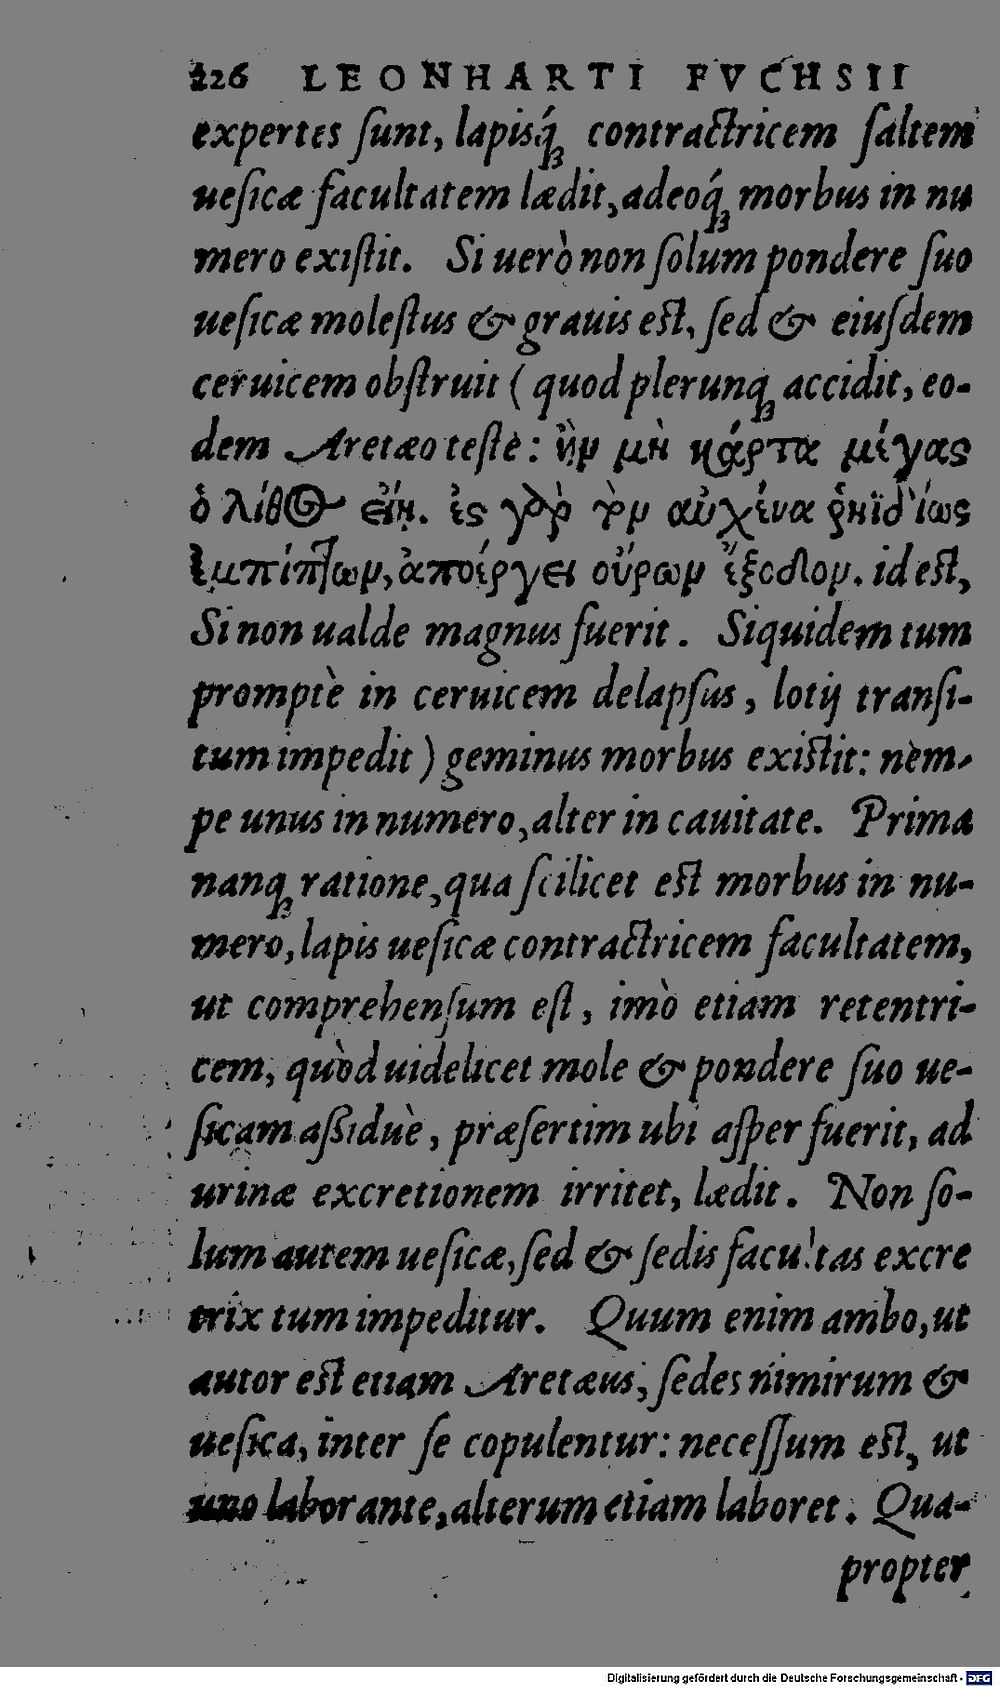 226 LEONHARTI FVCHSII
expertes ſunt, lapisq́ꝫ contractricem ſaltem
ueſicæ facultatem lædit, adeoq́ꝫ morbus in nu
mero exiſtit. Si uerò non ſolum pondere ſuo
ueſicæ moleſtus & grauis eſt, ſed & eiuſdem
ceruicem obſtruit ( quod plerunqꝫ accidit, eo-
dem Aretæo teſte: ἢν μὴ κάρτα μέγας
ὁ λίθος εἴη. ἐς γὰρ τὸν αὐχένα ῥηϊδίως
ἐμπίπτων, ἀποέργει οὔρων ἔξοδον. id eſt,
Si non ualde magnus fuerit. Siquidem tum
promptè in ceruicem delapſus, lotij tranſi-
tum impedit ) geminus morbus exiſtit: nem-
pe unus in numero, alter in cauitate. Prima
nanqꝫ ratione, qua ſcilicet eſt morbus in nu-
mero, lapis ueſicæ contractricem facultatem,
ut comprehenſum eſt, imò etiam retentri-
cem, quòd uidelicet mole & pondere ſuo ue-
ſicam aſsiduè, præſertim ubi aſper fuerit, ad
urinæ excretionem irritet, lædit. Non ſo-
lum autem ueſicæ, ſed & ſedis facultas excre
trix tum impeditur. Quum enim ambo, ut
autor eſt etiam Aretæus, ſedes nimirum &
ueſica, inter ſe copulentur: neceſſum eſt, ut
uno laborante, alterum etiam laboret. Qua-
propter
Digitalisierung gefördert durch die Deutsche Forschungsgemeinschaft - DFG